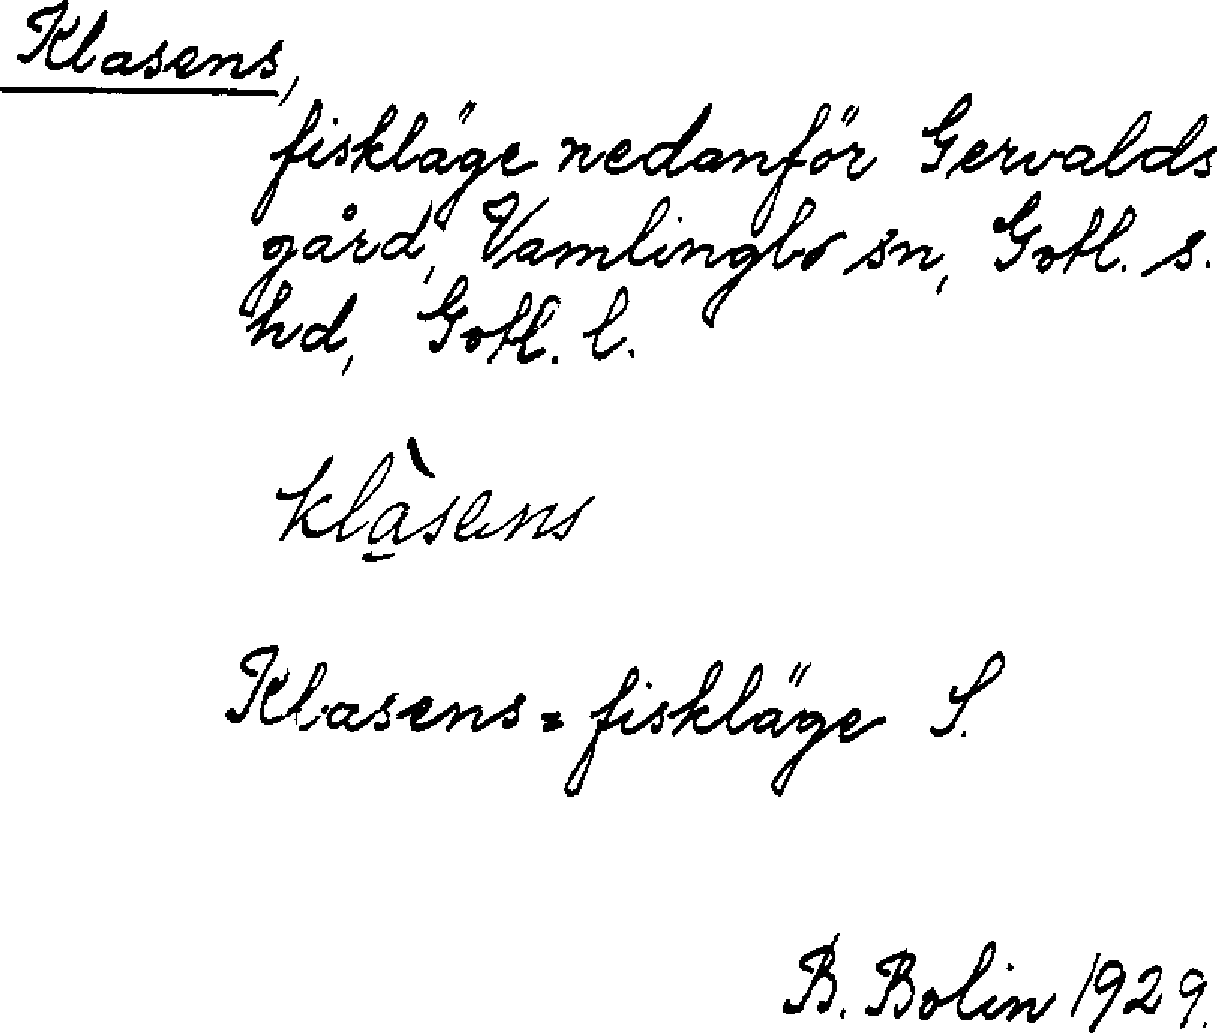 Klasens,
fiskläge nedanför Gervalds
gård, Vamlingbo sn, Gotl. s.
hd, Gotl. l.
klա̀sens
Klasens = fiskläge S.
B. Bolin 1929.